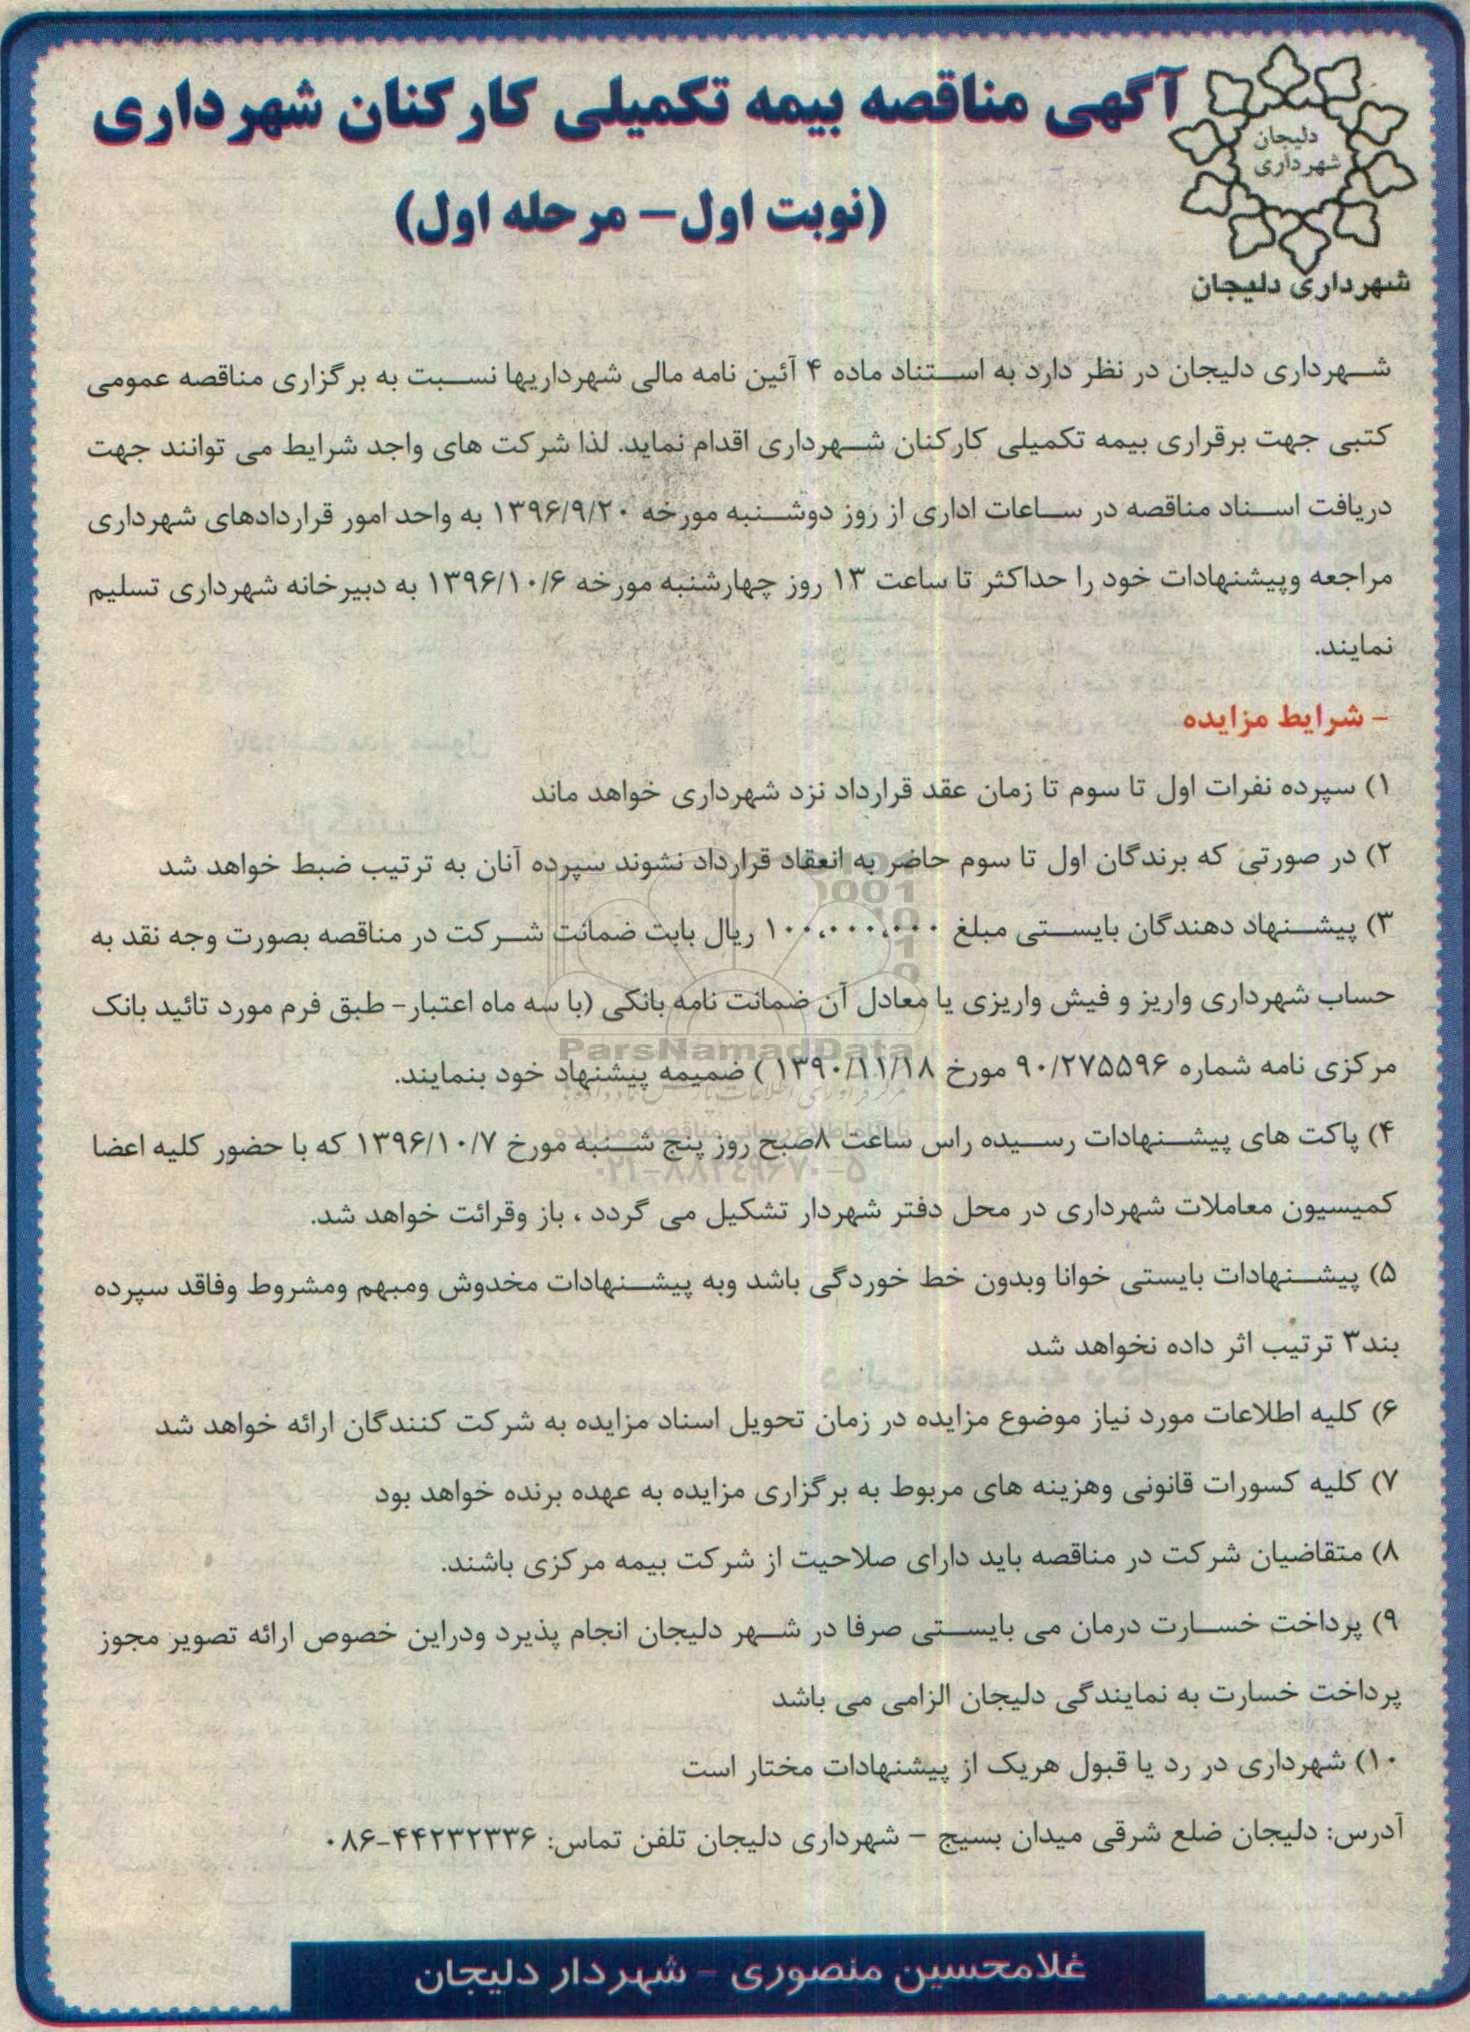 آگهی مناقصه بیمه تکمیلی کارکنان شهرداری
(نوبت اول– مرحله اول)
دلیجان
شهرداری
شهرداری دلیجان
شهرداری دلیجان در نظر دارد به استناد ماده ۴ آئین نامه مالی شهرداریها نسبت به برگزاری مناقصه عمومی
کتبی جهت برقراری بیمه تکمیلی کارکنان شهرداری اقدام نماید. لذا شرکت های واجد شرایط می توانند جهت
دریافت اسناد مناقصه در ساعات اداری از روز دوشنبه مورخه ۱۳۹۶/۹/۲۰ به واحد امور قراردادهای شهرداری
مراجعه وپیشنهادات خود را حداکثر تا ساعت ۱۳ روز چهارشنبه مورخه ۱۳۹۶/۱۰/۶ به دبیرخانه شهرداری تسلیم
نمایند.
- شرایط مزایده
۱) سپرده نفرات اول تا سوم تا زمان عقد قرارداد نزد شهرداری خواهد ماند
۲) در صورتی که برندگان اول تا سوم حاضر به انعقاد قرارداد نشوند سپرده آنان به ترتیب ضبط خواهد شد
۳) پیشنهاد دهندگان بایستی مبلغ ۱۰۰،۰۰۰،۰۰۰ ریال بابت ضمانت شرکت در مناقصه بصورت وجه نقد به
حساب شهرداری واریز و فیش واریزی یا معادل آن ضمانت نامه بانکی (با سه ماه اعتبار- طبق فرم مورد تائید بانک
مرکزی نامه شماره ۹۰/۲۷۵۵۹۶ مورخ ۱۳۹۰/۱۱/۱۸ ) ضمیمه پیشنهاد خود بنمایند.
۴) پاکت های پیشنهادات رسیده راس ساعت ۸صبح روز پنج شنبه مورخ ۱۳۹۶/۱۰/۷ که با حضور کلیه اعضا
کمیسیون معاملات شهرداری در محل دفتر شهردار تشکیل می گردد ، باز وقرائت خواهد شد.
۵) پیشنهادات بایستی خوانا وبدون خط خوردگی باشد وبه پیشنهادات مخدوش ومبهم ومشروط وفاقد سپرده
بند۳ ترتیب اثر داده نخواهد شد
۶) کلیه اطلاعات مورد نیاز موضوع مزایده در زمان تحویل اسناد مزایده به شرکت کنندگان ارائه خواهد شد
۷) کلیه کسورات قانونی وهزینه های مربوط به برگزاری مزایده به عهده برنده خواهد بود
۸) متقاضیان شرکت در مناقصه باید دارای صلاحیت از شرکت بیمه مرکزی باشند.
۹) پرداخت خسارت درمان می بایستی صرفا در شهر دلیجان انجام پذیرد ودراین خصوص ارائه تصویر مجوز
پرداخت خسارت به نمایندگی دلیجان الزامی می باشد
۱۰) شهرداری در رد یا قبول هریک از پیشنهادات مختار است
آدرس: دلیجان ضلع شرقی میدان بسیج – شهرداری دلیجان تلفن تماس: ۴۴۲۳۲۳۳۶-۰۸۶
غلامحسین منصوری - شهردار دلیجان
ParsNamadData
۰۲۱-۸۸۳۴۹۶۷۰-۵